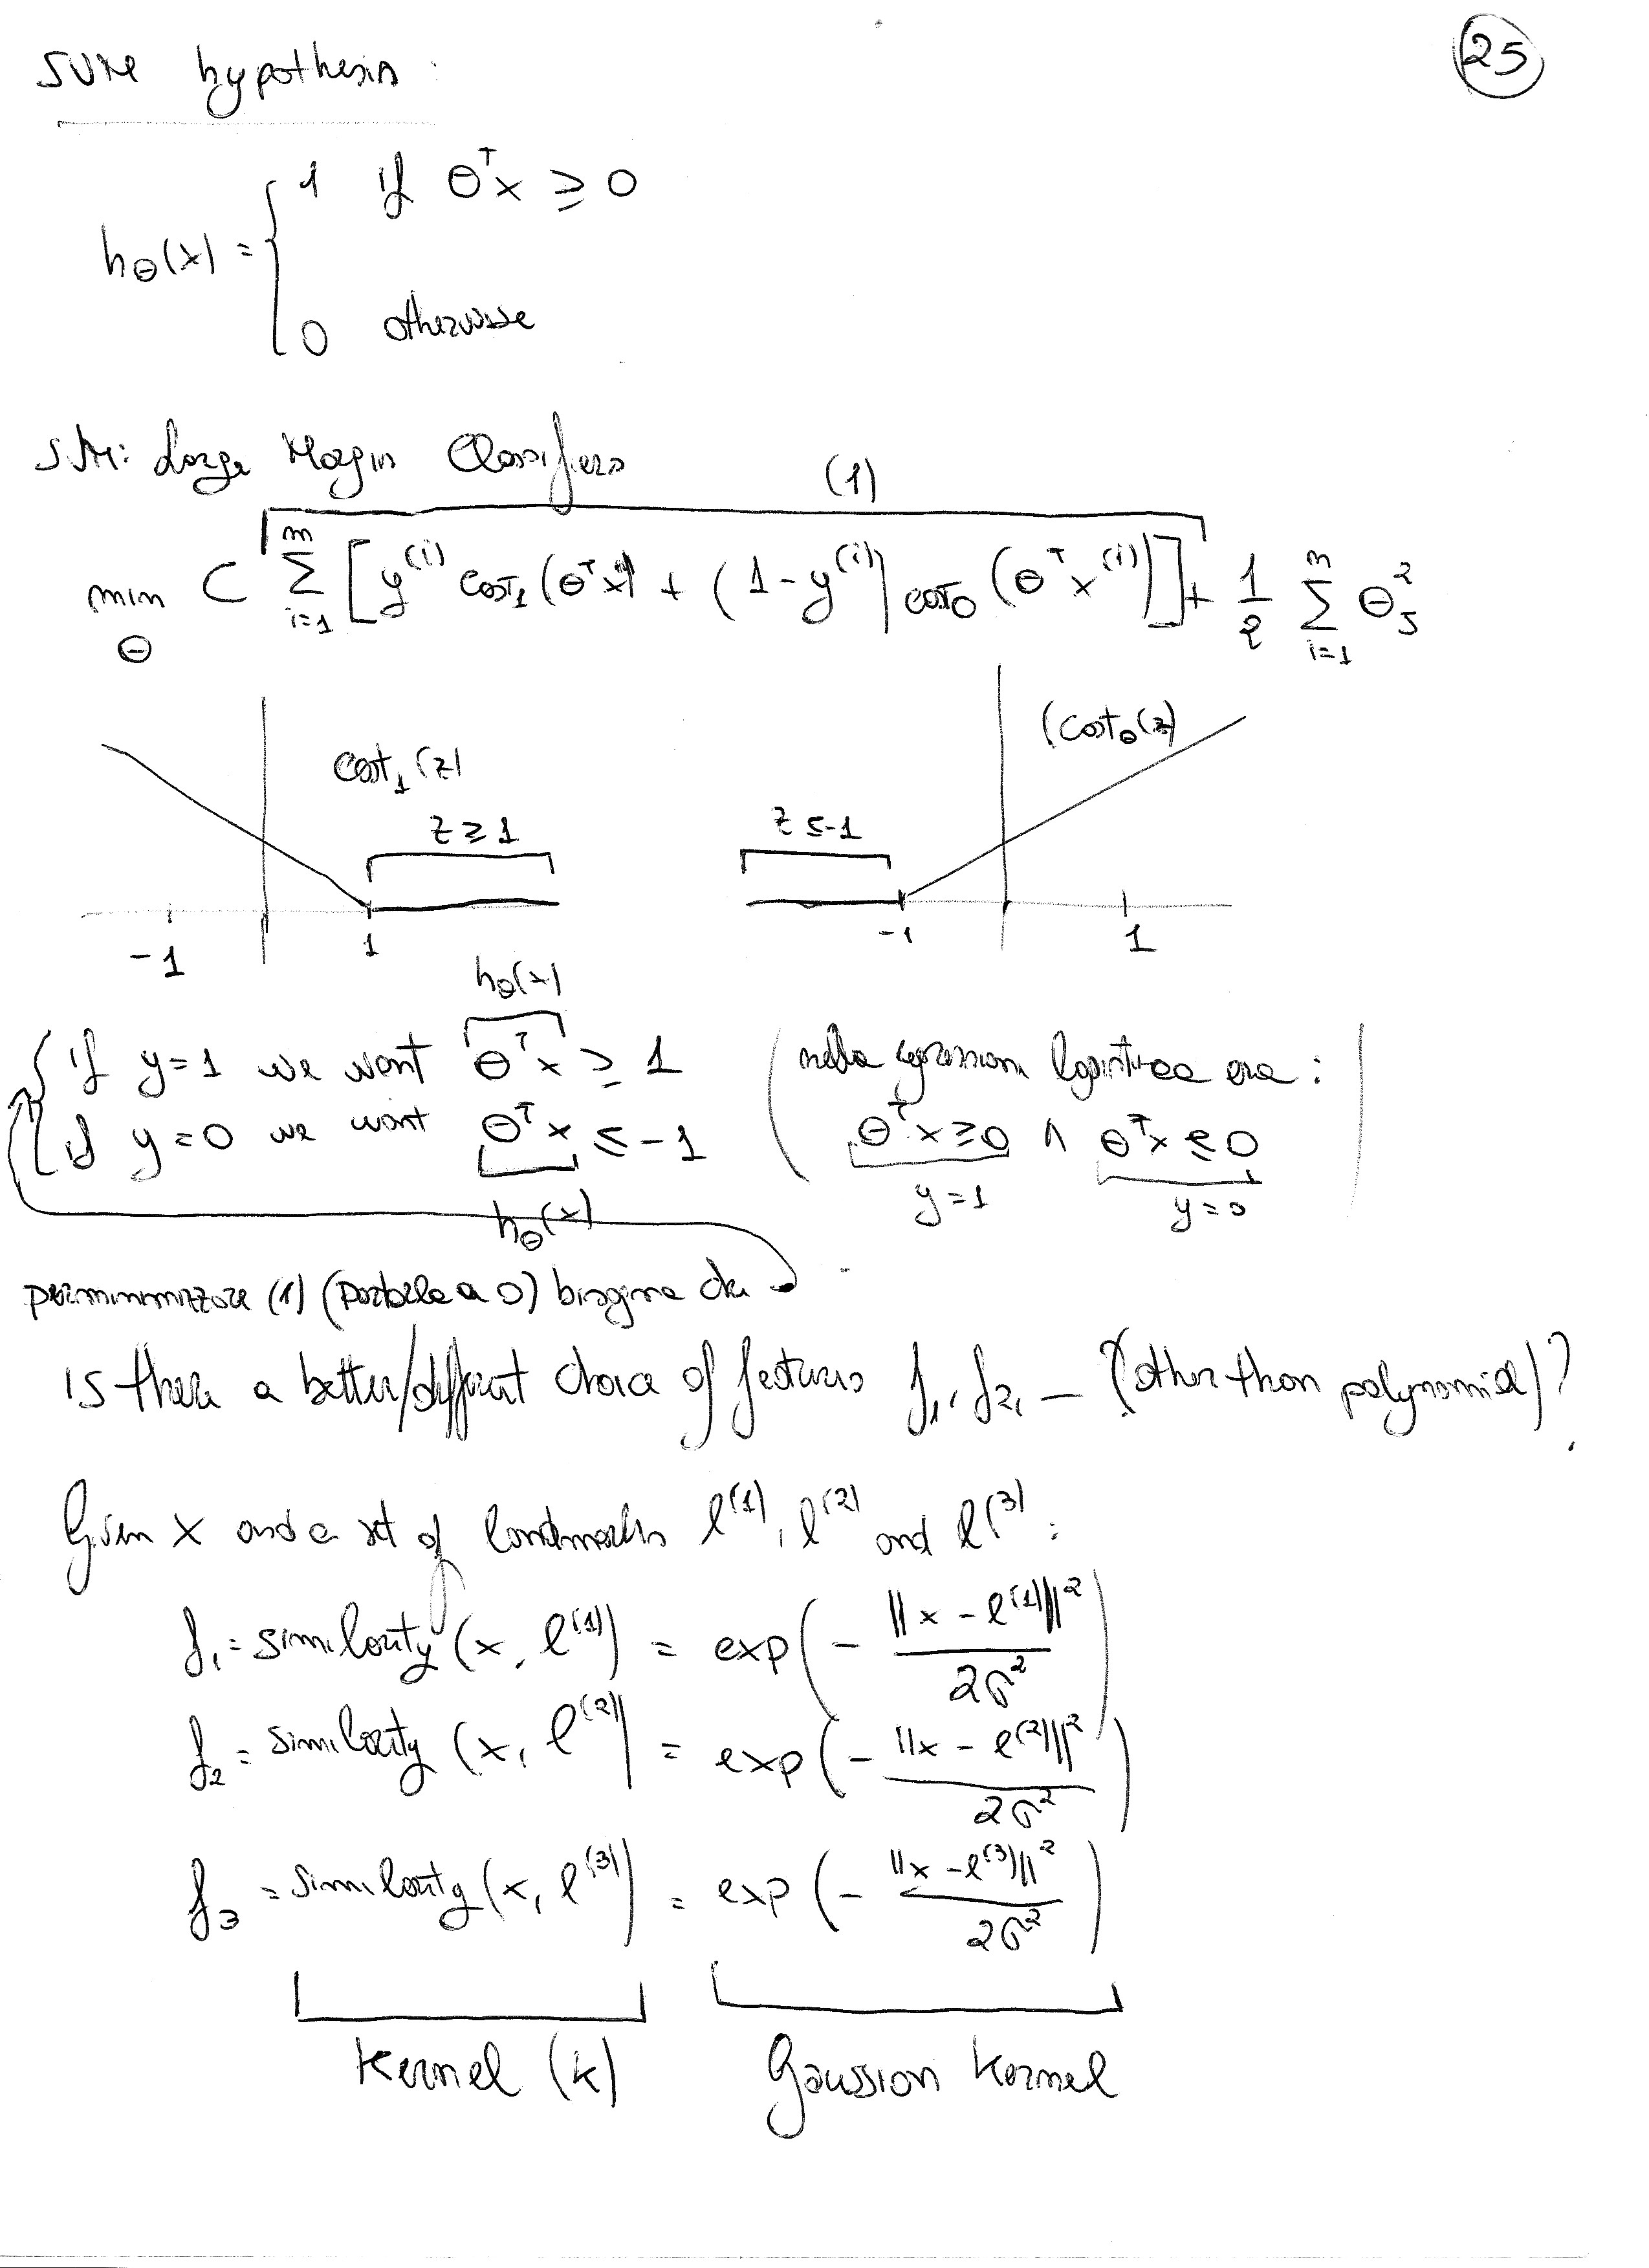 SVM hypothesis:
25
hθ(x) = { 1 if θᵀx ≥ 0
0 otherwise
SVM: Large Margin Classifiers
(1)
min θ C Σ i=1 m [y⁽ⁱ⁾ cost₁(θᵀx) + (1-y⁽ⁱ⁾) cost0 (θᵀx⁽ⁱ⁾)] + 1/2 Σ i=1 n θj²
cost₁(z)
(cost₀(z)
z ≥ 1
z ≤ -1
-1 1
-1 1
hθ(x)
if y=1 we want θᵀx ≥ 1 (nella regressione logistica era:
if y=0 we want θᵀx ≤ -1 θᵀx ≥ 0 ∧ θᵀx ≤ 0)
y=1 y=0
hθ(x)
per minimizzare (1) (portarla a 0) bisogna che
is there a better/different choice of features f₁, f₂, — (other than polynomial)?
Given x and a set of landmarks l⁽¹⁾, l⁽²⁾ and l⁽³⁾:
f₁ = similarity (x, l⁽¹⁾) = exp(- ||x - l⁽¹⁾||² / 2σ²)
f₂ = similarity (x, l⁽²⁾) = exp(- ||x - l⁽²⁾||² / 2σ²)
f₃ = similarity (x, l⁽³⁾) = exp(- ||x - l⁽³⁾||² / 2σ²)
Kernel (k) Gaussian Kernel